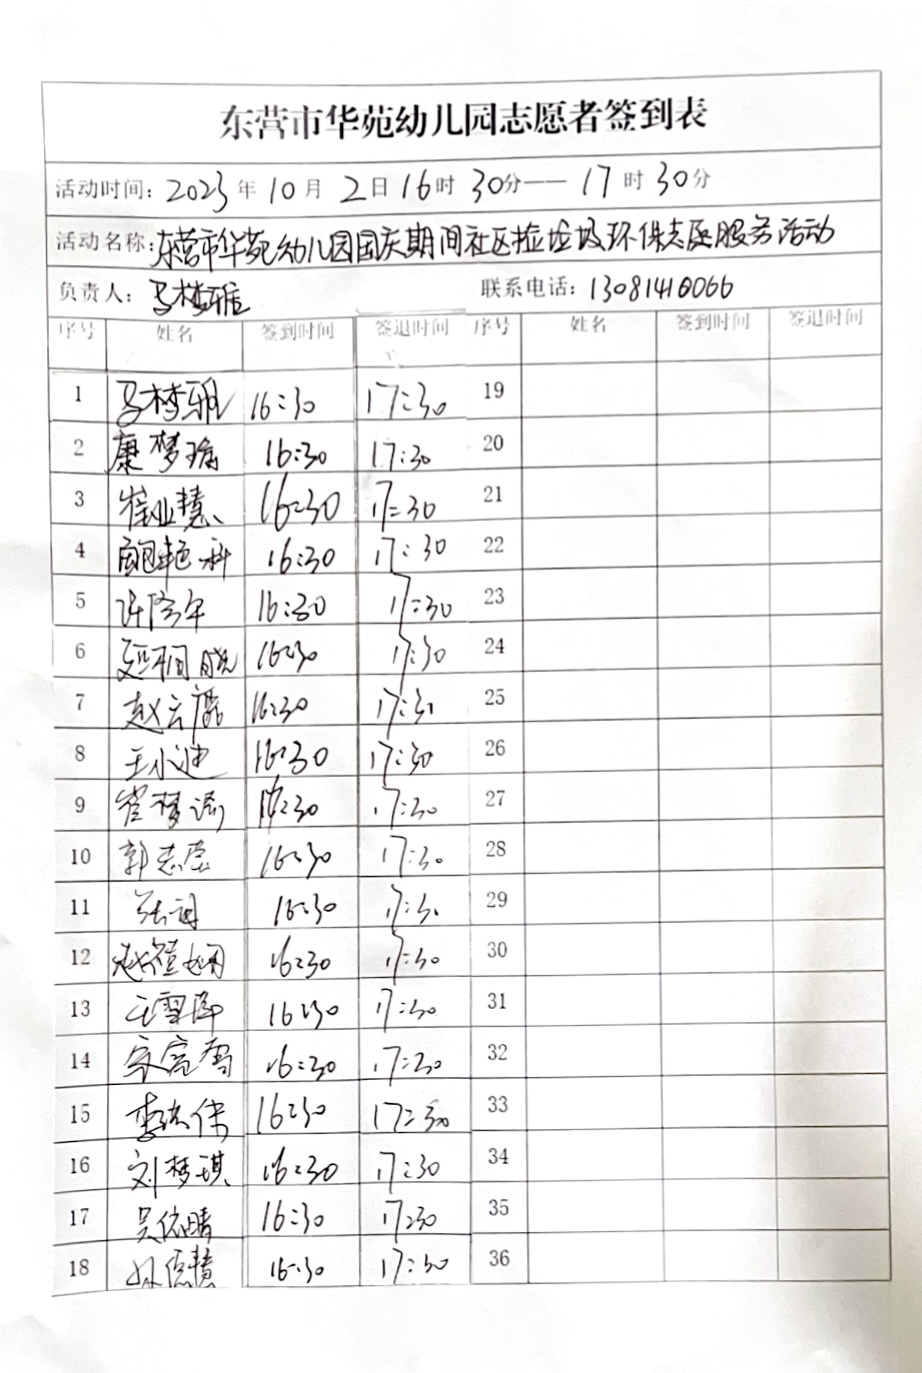 东营市华苑幼儿园志愿者签到表
活动时间：2023年10月2日16时30分——17时30分
活动名称：东营市华苑幼儿园国庆期间社区捡垃圾环保志愿服务活动
负责人：马梦雅 联系电话：13081410066
序号 姓名 签到时间 签退时间 序号 姓名 签到时间 签退时间
1 马梦雅 16:30 17:30 19
2 康梦瑜 16:30 17:30 20
3 崔业慧 16:30 17:30 21
4 16:30 17:30 22
5 16:30 17:30 23
6 16:30 17:30 24
7 赵云 16:30 17:31 25
8 王小迪 16:30 17:30 26
9 梦 16:30 17:30 27
10 郭志 16:30 17:30 28
11 16:30 17:30 29
12 赵 16:30 17:30 30
13 王雪 16:30 17:30 31
14 16:30 17:30 32
15 李 16:30 17:30 33
16 刘梦琪 16:30 17:30 34
17 吴依晴 16:30 17:30 35
18 16:30 17:30 36